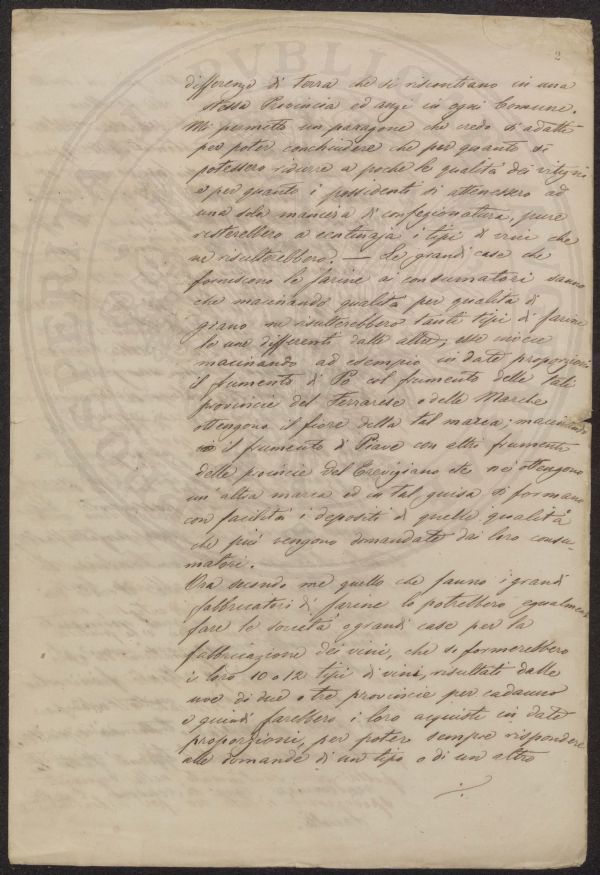 2
differenze di terra che si riscontrano in una
stessa Provincia ed anzi in ogni Comune.
Mi permetto un paragone che credo si adatti
per poter conchiudere che per quanto si
potessero ridurre a poche le qualità dei vitigni
e per quanto i possidenti si attenessero ad
una sola maniera di confezionatura, pure
resterebbero a centinaja i tipi di vini che
ne risulterebbero. — Le grandi case che
forniscono le farine ai consumatori sanno
che macinando qualità per qualità di
grano ne risulterebbero tanti tipi di farine
le une differenti dalle altre; esse invece
macinando ad esempio in date proporzioni
il frumento di Po col frumento delle tali
provincie del Ferrarese o delle Marche
ottengono il fiore della tal marca; macinando
il frumento di Piave con altri frumenti
delle provincie del Trevigiano ottengono
un'altra marca ed in tal guisa si formano
con facilità i depositi di quelle qualità
che più vengono domandate dai loro consu-
matori.
Ora secondo me quello che fanno i grandi
fabbricatori di farine lo potrebbero egualmente
fare le società o grandi case per la
fabbricazione dei vini, che si formerebbero
i loro 10 o 12 tipi di vini, risultati dalle
uve di due o tre provincie per cadauno
e quindi farebbero i loro acquisti in date
proporzioni, per poter sempre rispondere
alle domande di un tipo o di un altro
PVBLIC